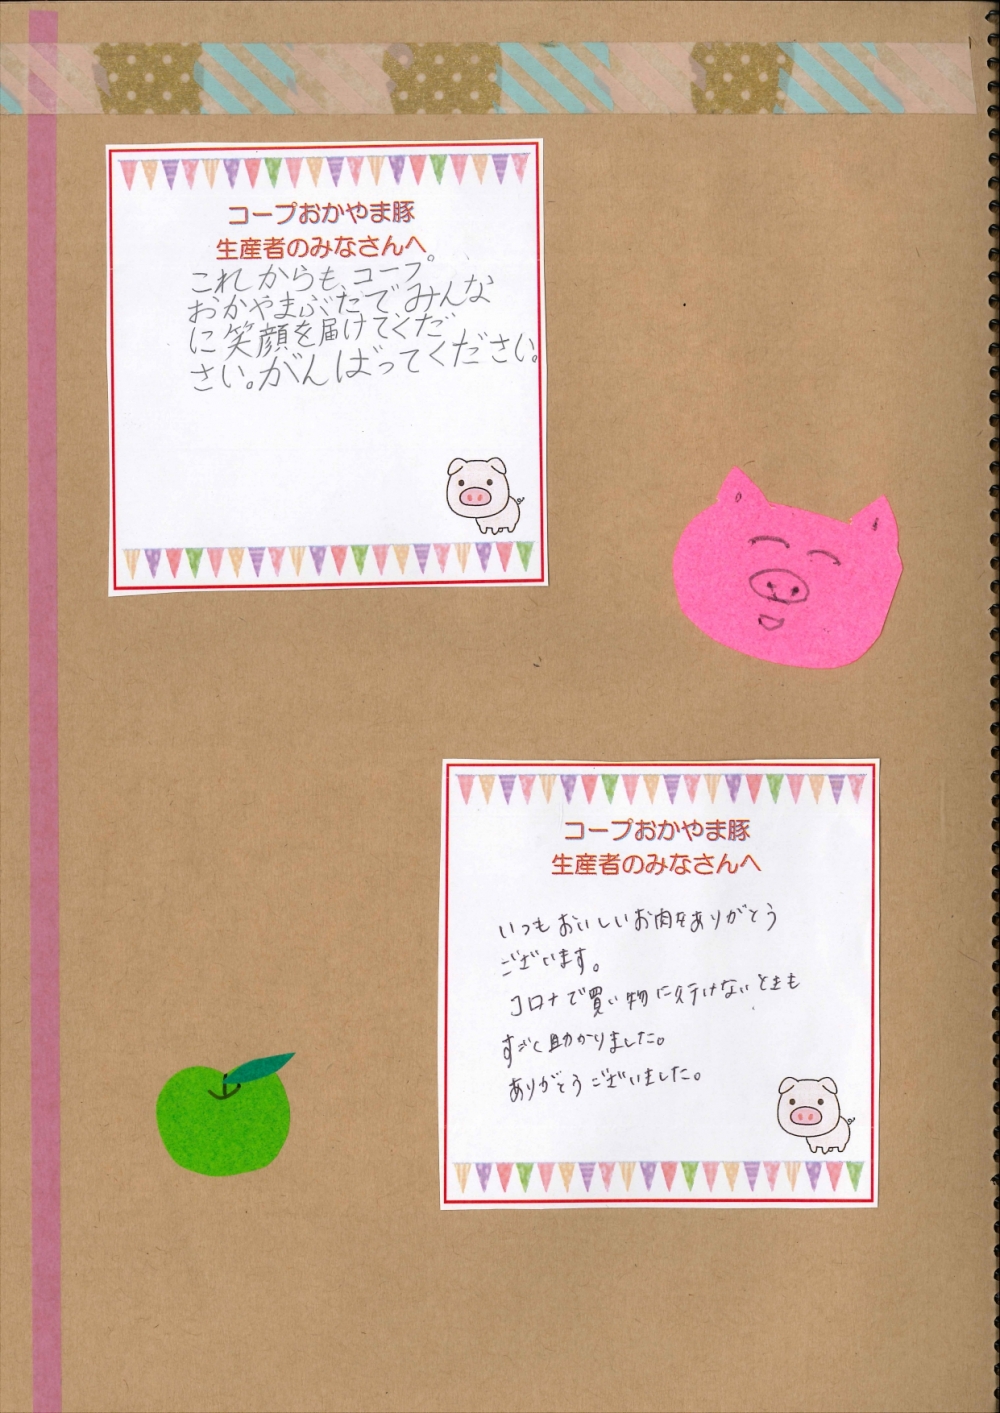 コープおかやま豚
生産者のみなさんへ
これからも、コープ
おかやまぶたでみんな
に笑顔を届けてくだ
さい。がんばってください。
コープおかやま豚
生産者のみなさんへ
いつもおいしいお肉をありがとう
ございます。
コロナで買い物に行けないときも
すごく助かりました。
ありがとうございました。